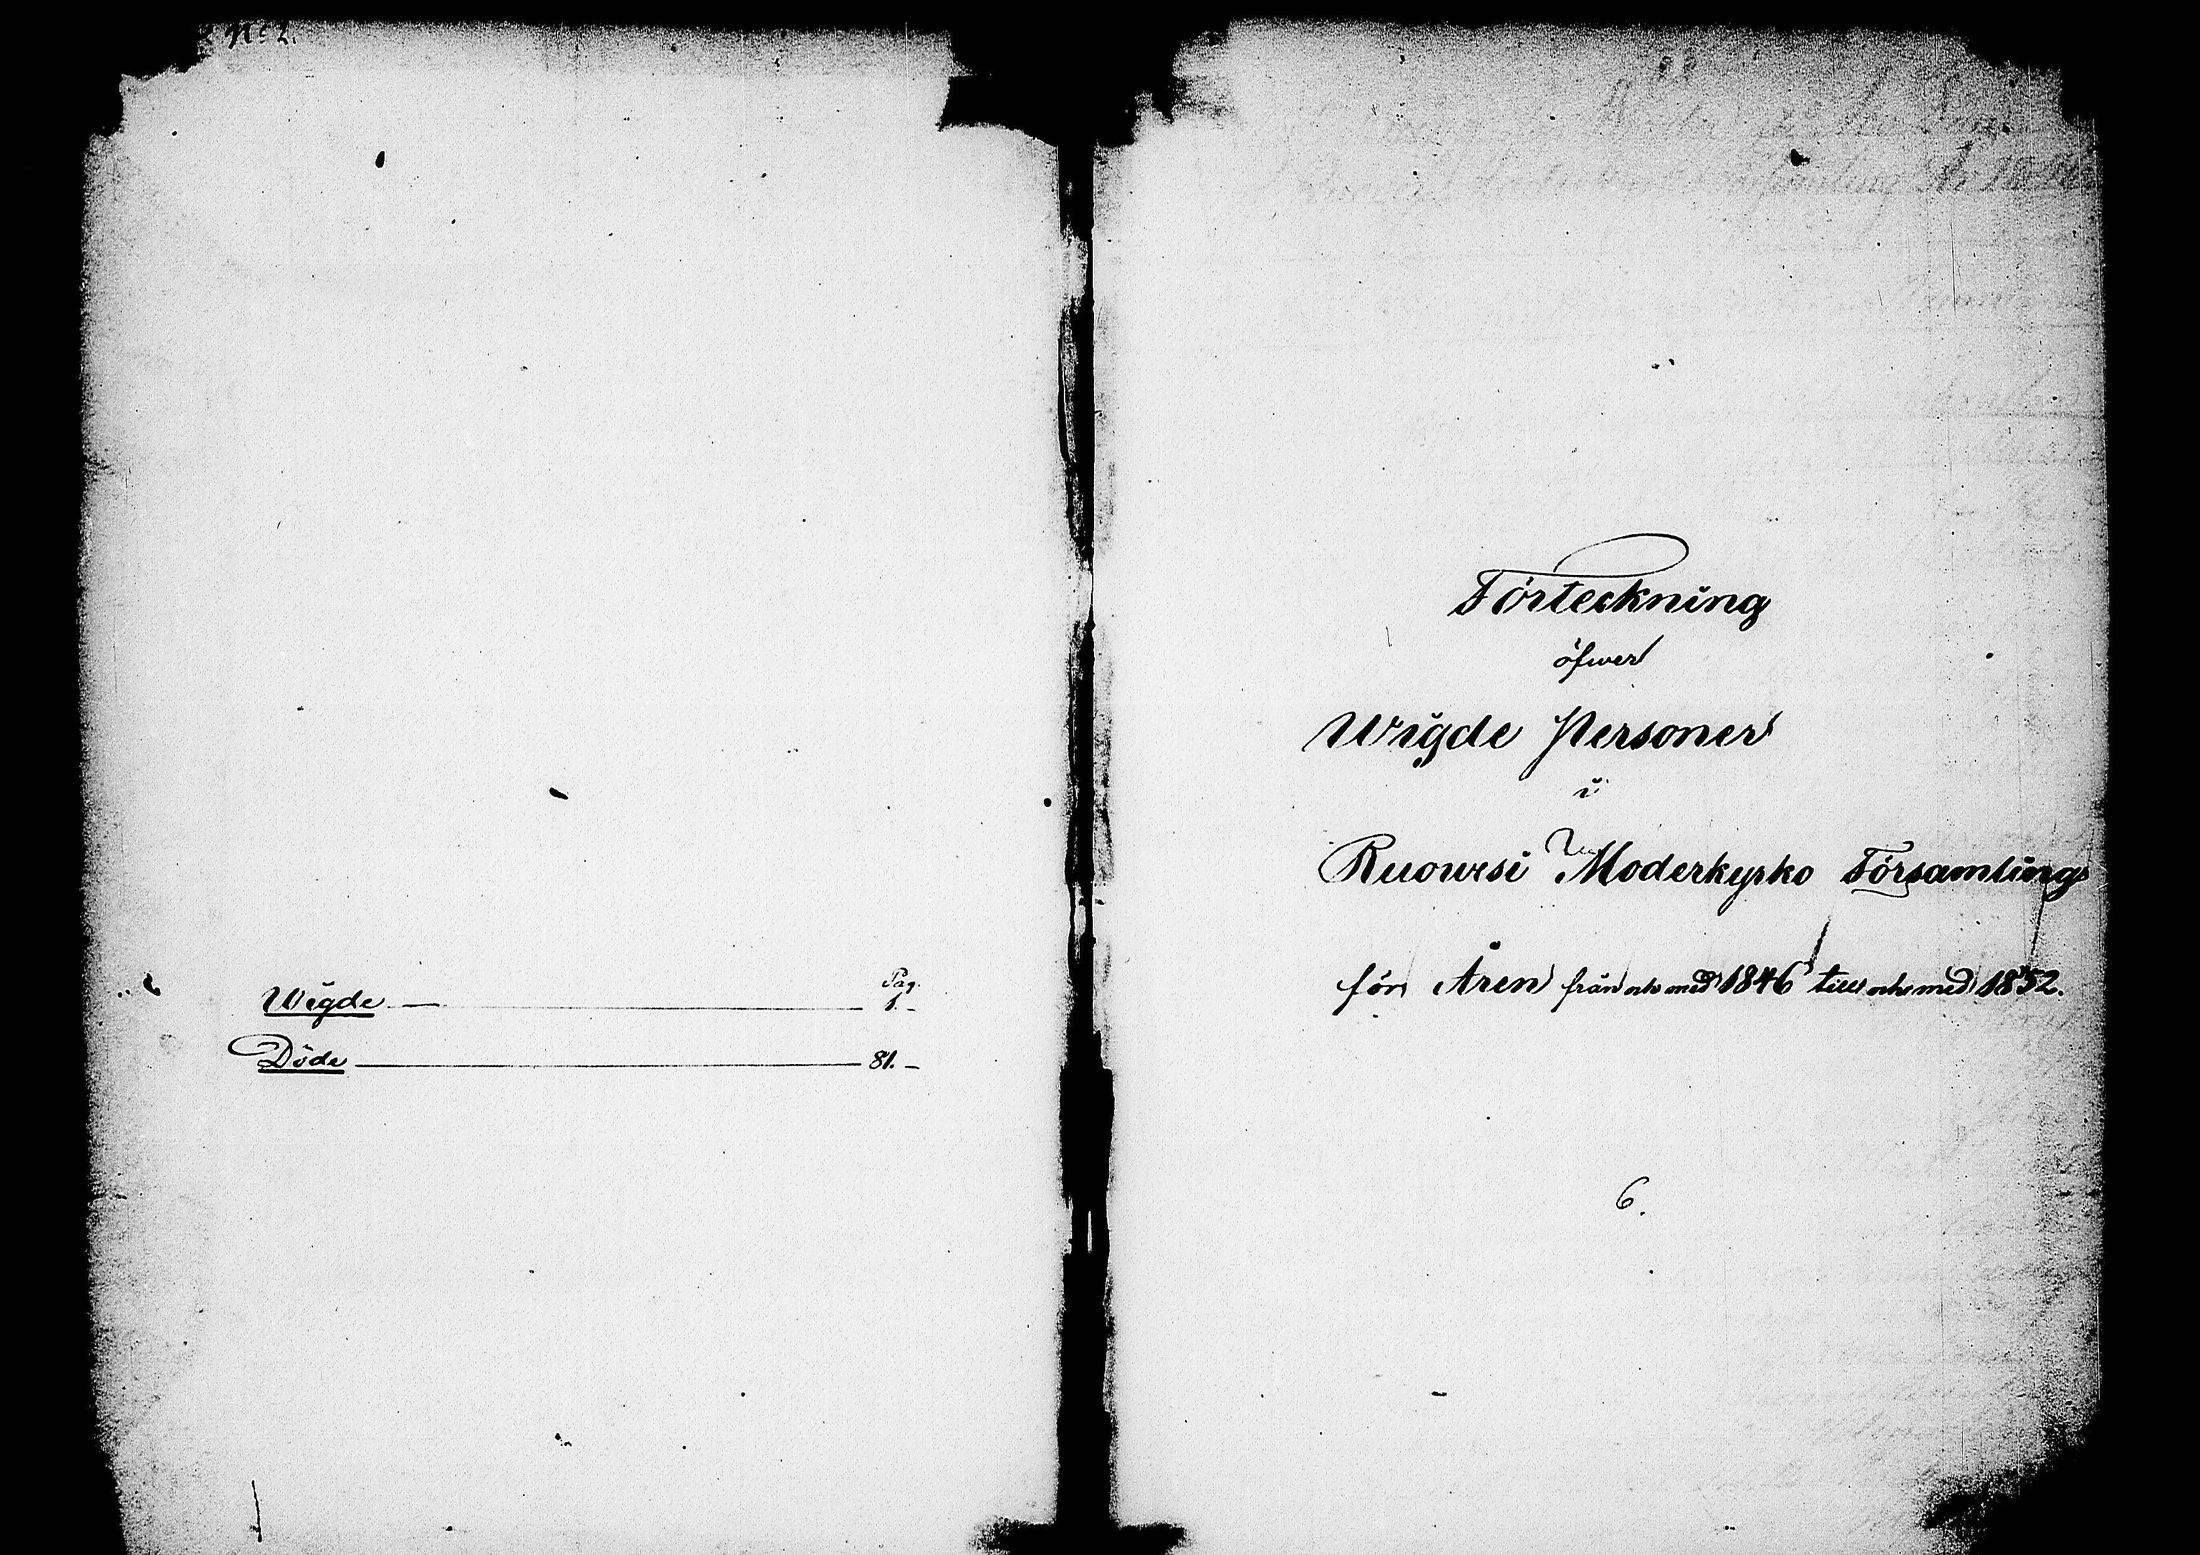 No 2.
Pag.
Wigde — 1. –
Döde — 81. –
Förteckning
öfwer
Wigde Personer
i
Ruowesi Moderkyrko Församling
för Åren från och med 1846 till och med 1852.
6.